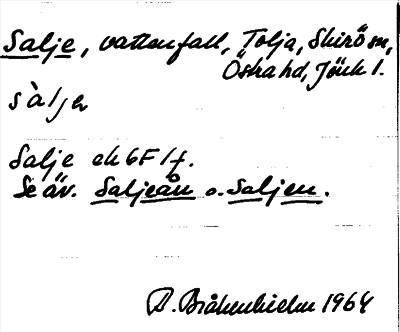 Salje, vattenfall, Tolja, Skirö sn,
Östra hd, Jönk l.
sàljer
Salje ek 6F 1f.
Se äv. Saljeån o. Saljen.
1964